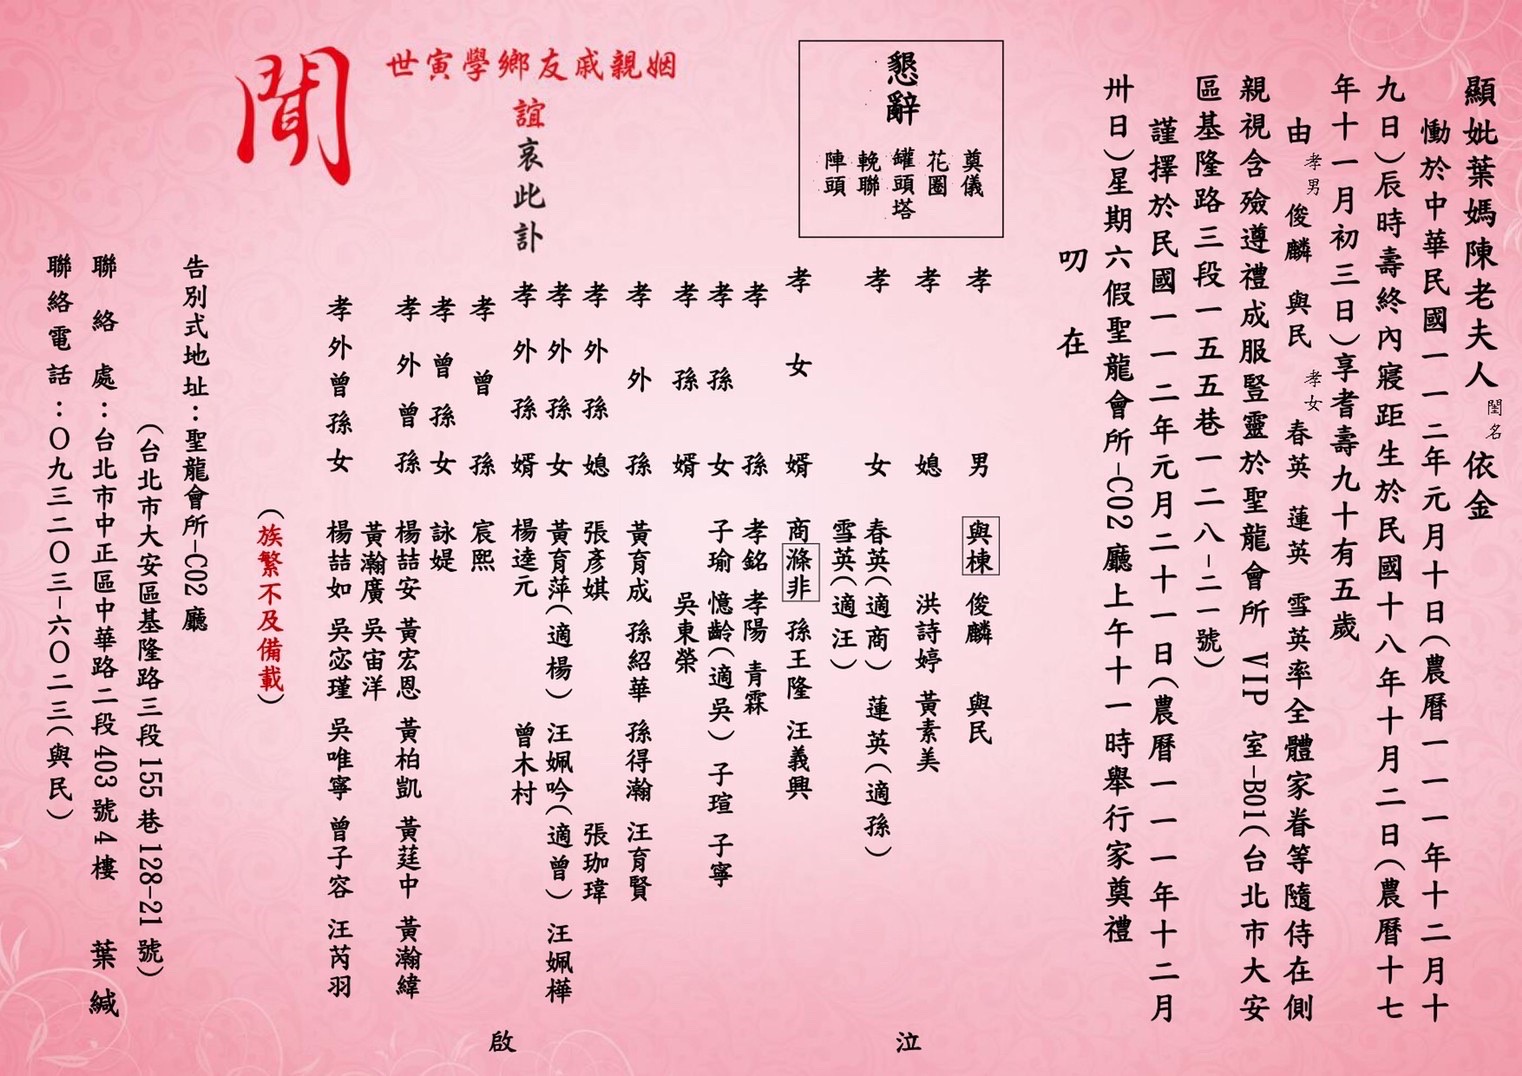 顯妣葉媽陳老夫人閨名依金
慟於中華民國一一二年元月十日(農曆一一一年十二月十
九日)辰時壽終內寢距生於民國十八年十月二日(農曆十七
年十一月初三日)享耆壽九十有五歲
由孝男俊麟 與民 孝女春英 蓮英 雪英率全體家眷等隨侍在側
親視含殮遵禮成服豎靈於聖龍會所 VIP 室-B01(台北市大安
區基隆路三段一五五巷一二八-二一號)
謹擇於民國一一二年元月二十一日(農曆一一一年十二月
卅日)星期六假聖龍會所-C02廳上午十一時舉行家奠禮
叨在
懇辭
奠儀
花圈
罐頭塔
輓聯
陣頭
孝男 與棟 俊麟 與民
孝媳 洪詩婷 黃素美
孝女 春英(適商) 蓮英(適孫)
雪英(適汪)
孝女婿 商滌非 孫王隆 汪義興
泣
孝孫 孝銘 孝陽 青霖
孝孫女 子瑜 憶齡(適吳) 子瑄 子寧
孝孫婿 吳東榮
孝外孫 黃育成 孫紹華 孫得瀚 汪育賢
孝外孫媳 張彥娸 張珈瑋
孝外孫女 黃育萍(適楊) 汪姵吟(適曾) 汪姵樺
孝外孫婿 楊逵元 曾木村
孝曾孫 宸熙
孝曾孫女 詠媞
孝外曾孫 楊喆安 黃宏恩 黃柏凱 黃莛中 黃瀚緯
黃瀚廣 吳宙洋
孝外曾孫女 楊喆如 吳宓瑾 吳唯寧 曾子容 汪芮羽
啟
(族繁不及備載)
姻親戚友鄉學寅世
誼哀此訃
聞
告別式地址:聖龍會所-C02廳
(台北市大安區基隆路三段155巷128-21號)
聯絡處:台北市中正區中華路二段403號4樓 葉緘
聯絡電話:〇九三二〇三-六〇二三(與民)